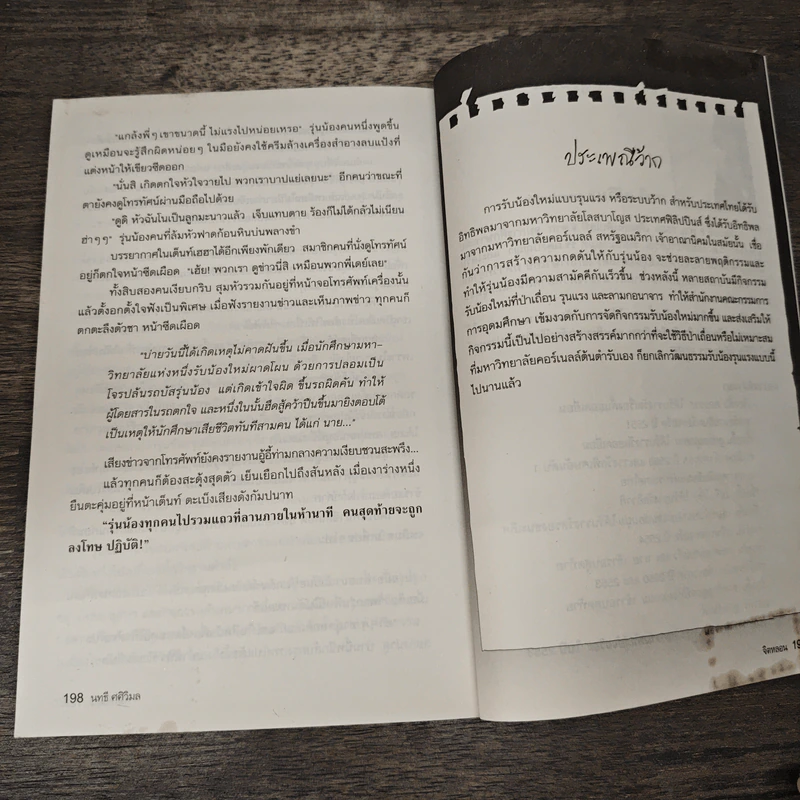 "แกล้งพี่ๆ เขาขนาดนี้ ไม่แรงไปหน่อยเหรอ" รุ่นน้องคนหนึ่งพูดขึ้น
ดูเหมือนจะรู้สึกผิดหน่อยๆ ในมือยังคงใช้ครีมล้างเครื่องสำอางลบแป้งที่
แต่งหน้าให้เขียวซีดออก
"นั่นสิ เกิดตกใจหัวใจวายไป พวกเราบาปแย่เลยนะ" อีกคนว่าขณะที่
ตายังคงดูโทรทัศน์ผ่านมือถือไปด้วย
"ดูดิ หัวฉันโนเป็นลูกมะนาวแล้ว เจ็บแทบตาย ร้องก็ไม่ได้กลัวไม่เนียน
ฮ่าๆๆ" รุ่นน้องคนที่ล้มหัวฟาดก้อนหินบ่นพลางขำ
บรรยากาศในเต็นท์เฮฮาได้อีกเพียงพักเดียว สมาชิกคนที่นั่งดูโทรทัศน์
อยู่ก็ตกใจหน้าซีดเผือด "เฮ้ย! พวกเรา ดูข่าวนี่สิ เหมือนพวกพี่เดย์เลย"
ทั้งสิบสองคนเงียบกริบ สุมหัวรวมกันอยู่ที่หน้าจอโทรศัพท์เครื่องนั้น
แล้วตั้งอกตั้งใจฟังเป็นพิเศษ เมื่อฟังรายงานข่าวและเห็นภาพข่าว ทุกคนก็
ตกตะลึงตัวชา หน้าซีดเผือด
"บ่ายวันนี้ได้เกิดเหตุไม่คาดฝันขึ้น เมื่อนักศึกษามหา-
วิทยาลัยแห่งหนึ่งรับน้องใหม่ผาดโผน ด้วยการปลอมเป็น
โจรปล้นรถบัสรุ่นน้อง แต่เกิดเข้าใจผิด ขึ้นรถผิดคัน ทำให้
ผู้โดยสารในรถตกใจ และหนึ่งในนั้นฮึดสู้คว้าปืนขึ้นมายิงตอบโต้
เป็นเหตุให้นักศึกษาเสียชีวิตทันทีสามคน ได้แก่ นาย..."
เสียงข่าวจากโทรศัพท์ยังคงรายงานอู้อี้ท่ามกลางความเงียบชวนสะพรึง...
แล้วทุกคนก็ต้องสะดุ้งสุดตัว เย็นเยือกไปถึงสันหลัง เมื่อเงาร่างหนึ่ง
ยืนตะคุ่มอยู่ที่หน้าเต็นท์ ตะเบ็งเสียงดังกัมปนาท
"รุ่นน้องทุกคนไปรวมแถวที่ลานภายในห้านาที คนสุดท้ายจะถูก
ลงโทษ ปฏิบัติ!"
198 นทธี ศศิวิมล
ประเพณีว้าก
การรับน้องใหม่แบบรุนแรง หรือระบบว้าก สำหรับประเทศไทยได้รับ
อิทธิพลมาจากมหาวิทยาลัยโลสบาโญส ประเทศฟิลิปปินส์ ซึ่งได้รับอิทธิพล
มาจากมหาวิทยาลัยคอร์เนลล์ สหรัฐอเมริกา เจ้าอาณานิคมในสมัยนั้น เชื่อ
กันว่าการสร้างความกดดันให้กับรุ่นน้อง จะช่วยละลายพฤติกรรมและ
ทำให้รุ่นน้องมีความสามัคคีกันเร็วขึ้น ช่วงหลังนี้ หลายสถาบันมีกิจกรรม
รับน้องใหม่ที่ป่าเถื่อน รุนแรง และลามกอนาจาร ทำให้สำนักงานคณะกรรมการ
การอุดมศึกษา เข้มงวดกับการจัดกิจกรรมรับน้องใหม่มากขึ้น และส่งเสริมให้
กิจกรรมนี้เป็นไปอย่างสร้างสรรค์มากกว่าที่จะใช้วิธีป่าเถื่อนหรือไม่เหมาะสม
ที่มหาวิทยาลัยคอร์เนลล์ต้นตำรับเอง ก็ยกเลิกวัฒนธรรมรับน้องรุนแรงแบบนี้
ไปนานแล้ว
จิตหลอน